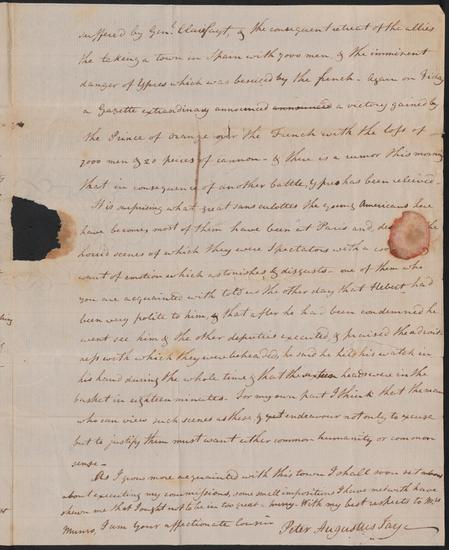 suffered by Genl. Clairfayt, & the consequent retreat of the allies
the taking a town in Spain with 7000 men, & the imminent
danger of Ypres which was besieged by the french - Again on Friday
a Gazette extraordinary announced announced a victory gained by
the Prince of Orange over the French with the loss of
7000 men & 20 pieces of cannon - & there is a rumor this morning
that in consequence of another battle, Ypres has been relieved -
It is surprising what great sans culottes the young Americans here
have become, most of them have been at Paris and, the
horrid scenes of which they were Spectators with a
want of emotion which astonishes & disgusts - one of them who
you are acquainted with told us the other day that Hebert had
been very polite to him, & that after he had been condemned he
went see him & the other deputies executed, & praised the adroit
ness with which they were beheaded, he said he held his watch in
his hand during the whole time & that the heads were in the
basket in eighteen minutes. For my own part I think that the man
who can view such scenes as these & yet endeavour not only to excuse
but to justify them must want either common humanity or common
sense -
As I grow more acquainted with this town I shall soon set
about executing my commissions, some small impositions I have met with have
shewn me that I ought not to be in too great hurry. With my best respects to Mrs
Munro, I am Your affectionate Cousin
Peter Augustus Jay